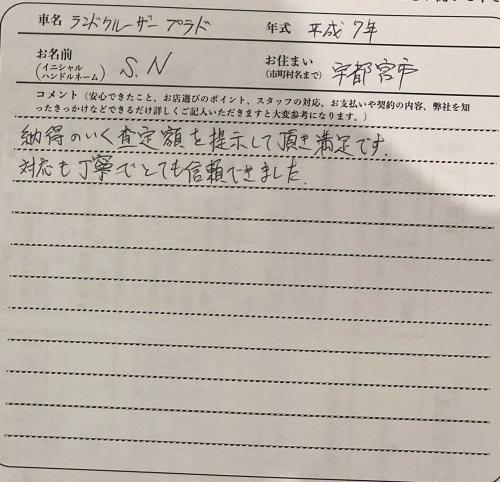 車名 ランドクルーザー プラド 年式 平成7年
お名前 (イニシャル ハンドルネーム) S.N お住まい (市町村名まで) 宇都宮市
コメント(安心できたこと、お店選びのポイント、スタッフの対応、お支払いや契約の内容、弊社を知
ったきっかけなどできるだけ詳しくご記入いただきますと大変参考になります。)
納得のいく査定額を提示して頂き満足です.
対応も丁寧でとても信頼できました.